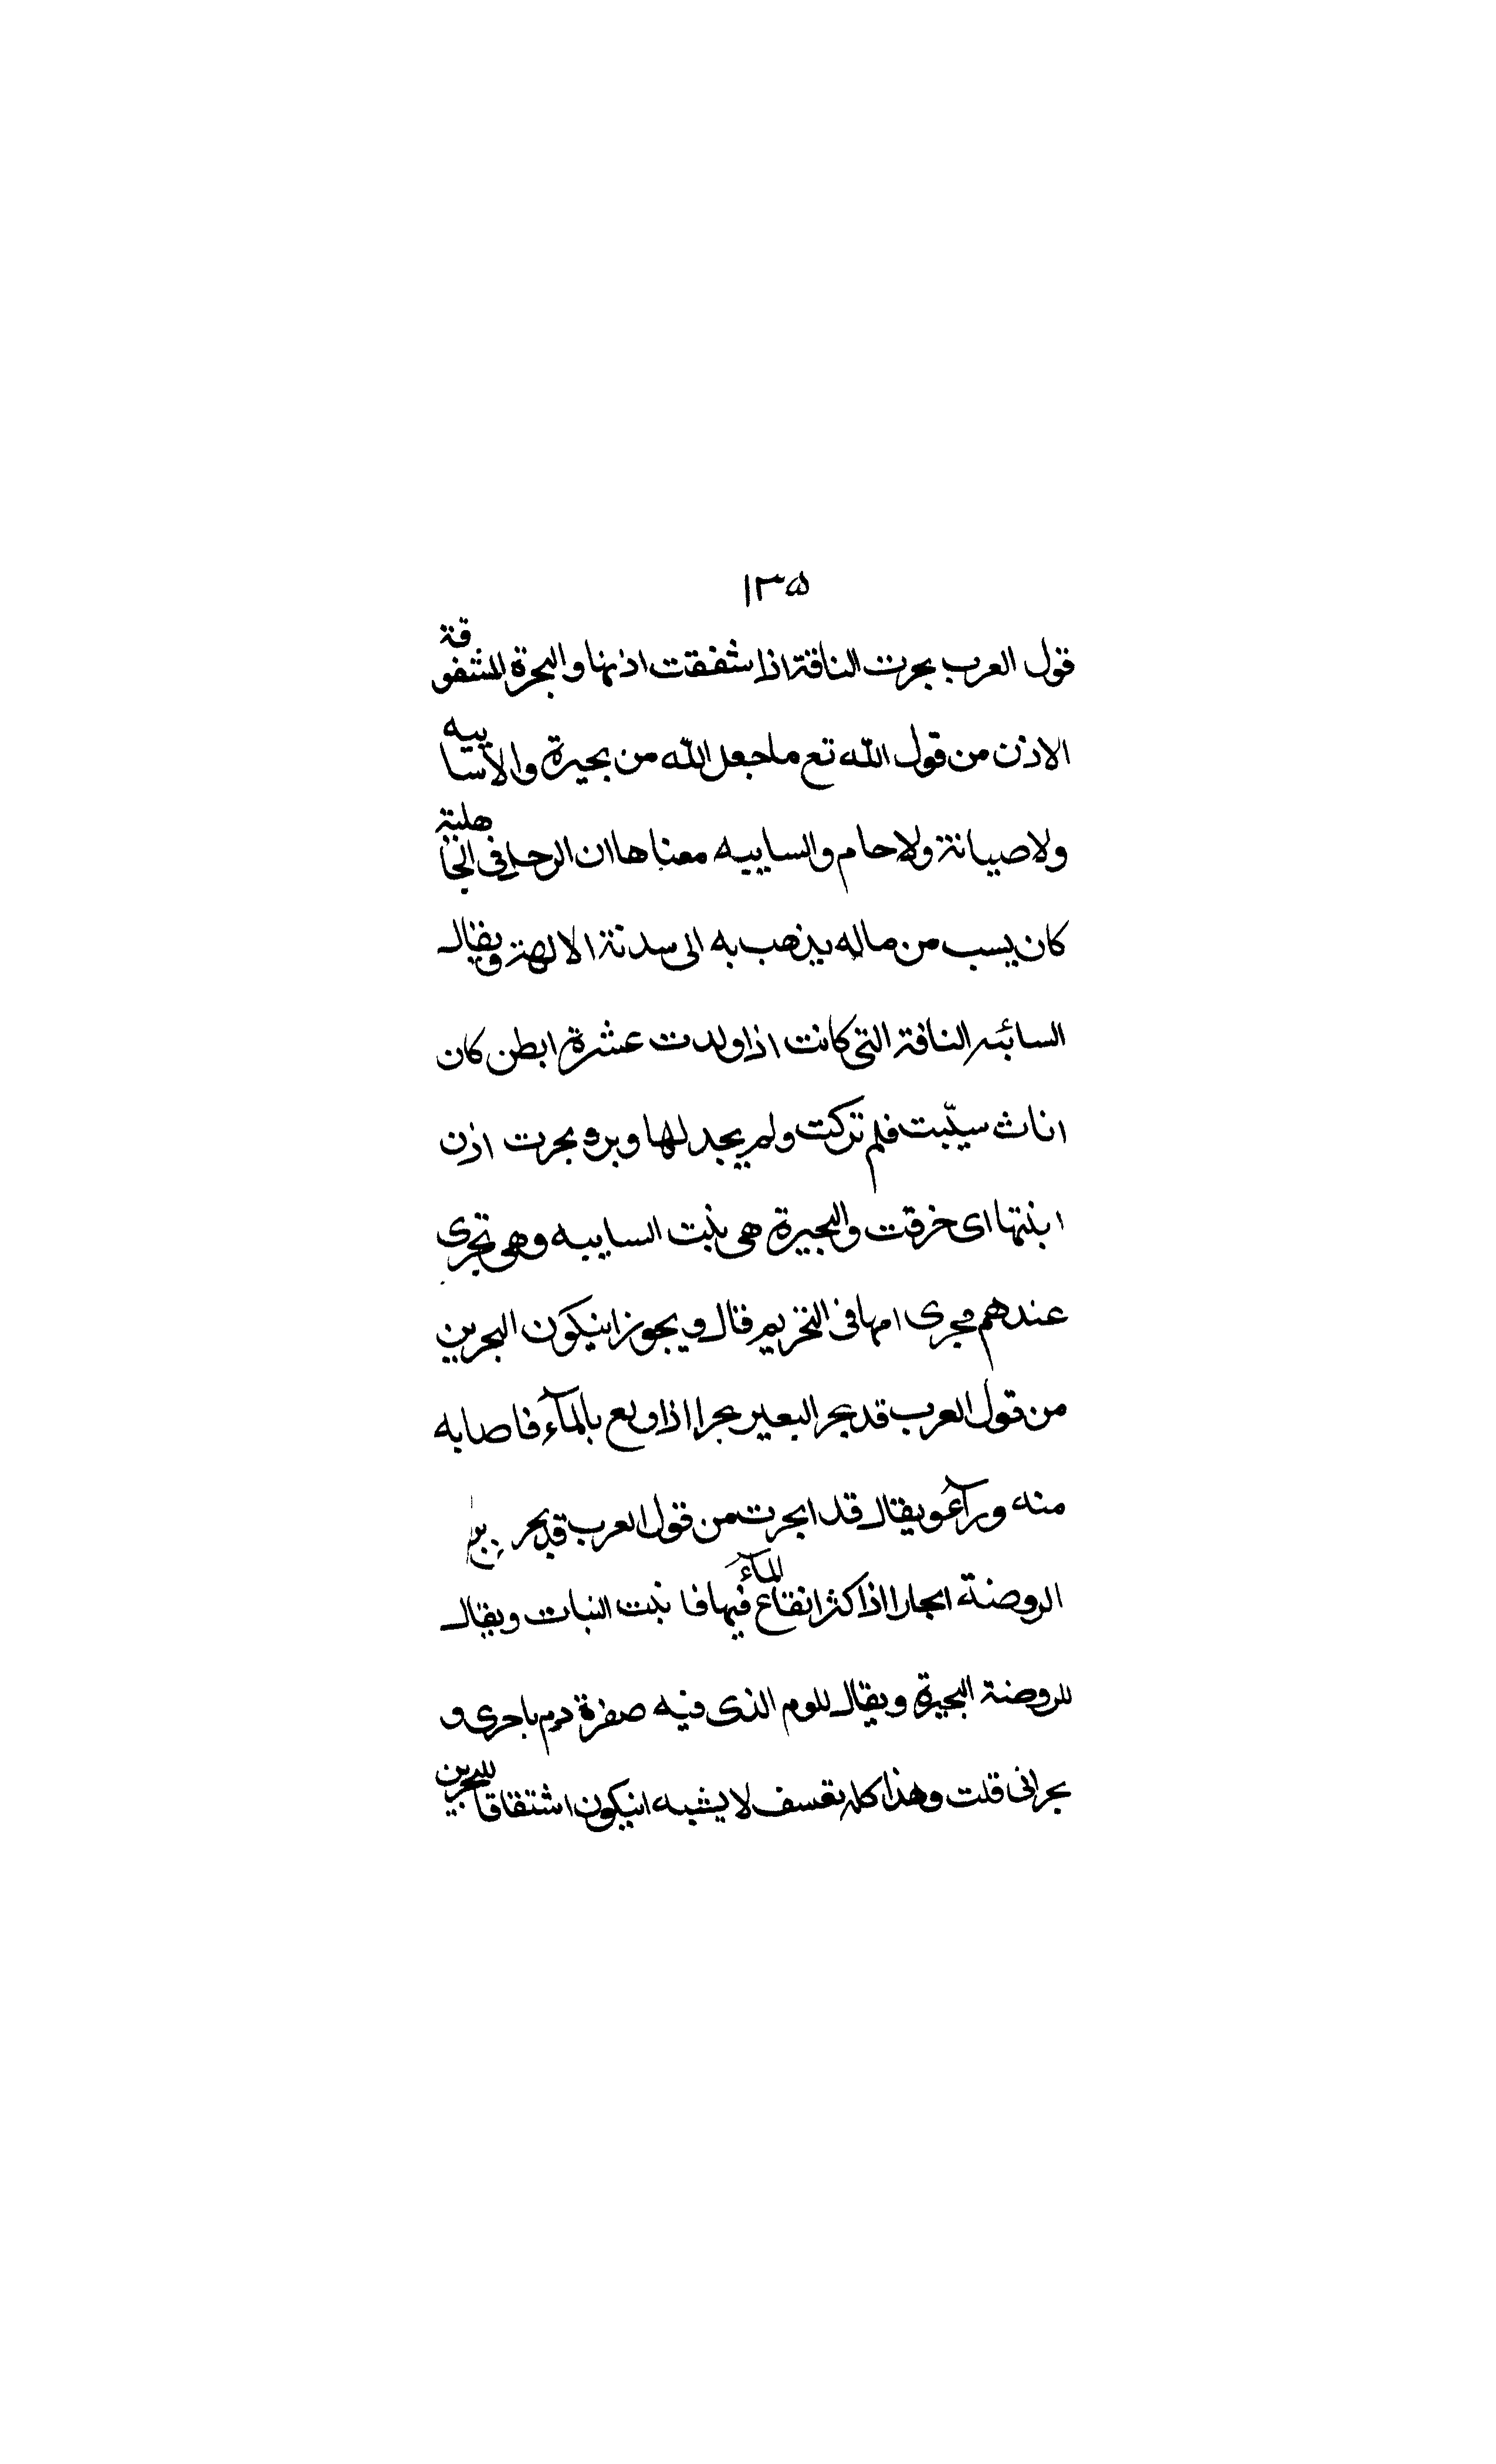 ١٣۵
قول العرب بجرت الناقة اذا شفقت اذنها والبجرة المشفوقة
الاذن من قول الله تع ماجعل الله من بحيرة والاسايبه
ولاصيانة ولاحام والسايبه معناها ان الرجل فى الجاهلية
كان يسب من ماله يذهب به الى سدنة الالهة ويقال
السائبه الناقة التى كانت اذا ولدت عشرة ابطن كان
اناث سيّبت فلم تركت ولم يجد لها وبره بحرت اذن
ابنتها اى خرقت والبحيرة هى بنت السايبه وهى تجرى
عندهم مجرى امها فى التحريم قال ويجوز اينكون البحرين
من قول العرب قد بجر البعير بجرا اذا ولع بالمآء فاصابه
منه ورآء ويقال قد ابجرت من قول العرب قد بحر
الروضة ابجارا اذا كثر انقاع المآء فيها فا نبت النبات ويقال
للروضة البجيرة ويقال للوم الذى فيه صفرة دم باحرى و
بحرانى قلت وهذا كله تعسف لا يشبه اينكون اشتقاقا للبحرين